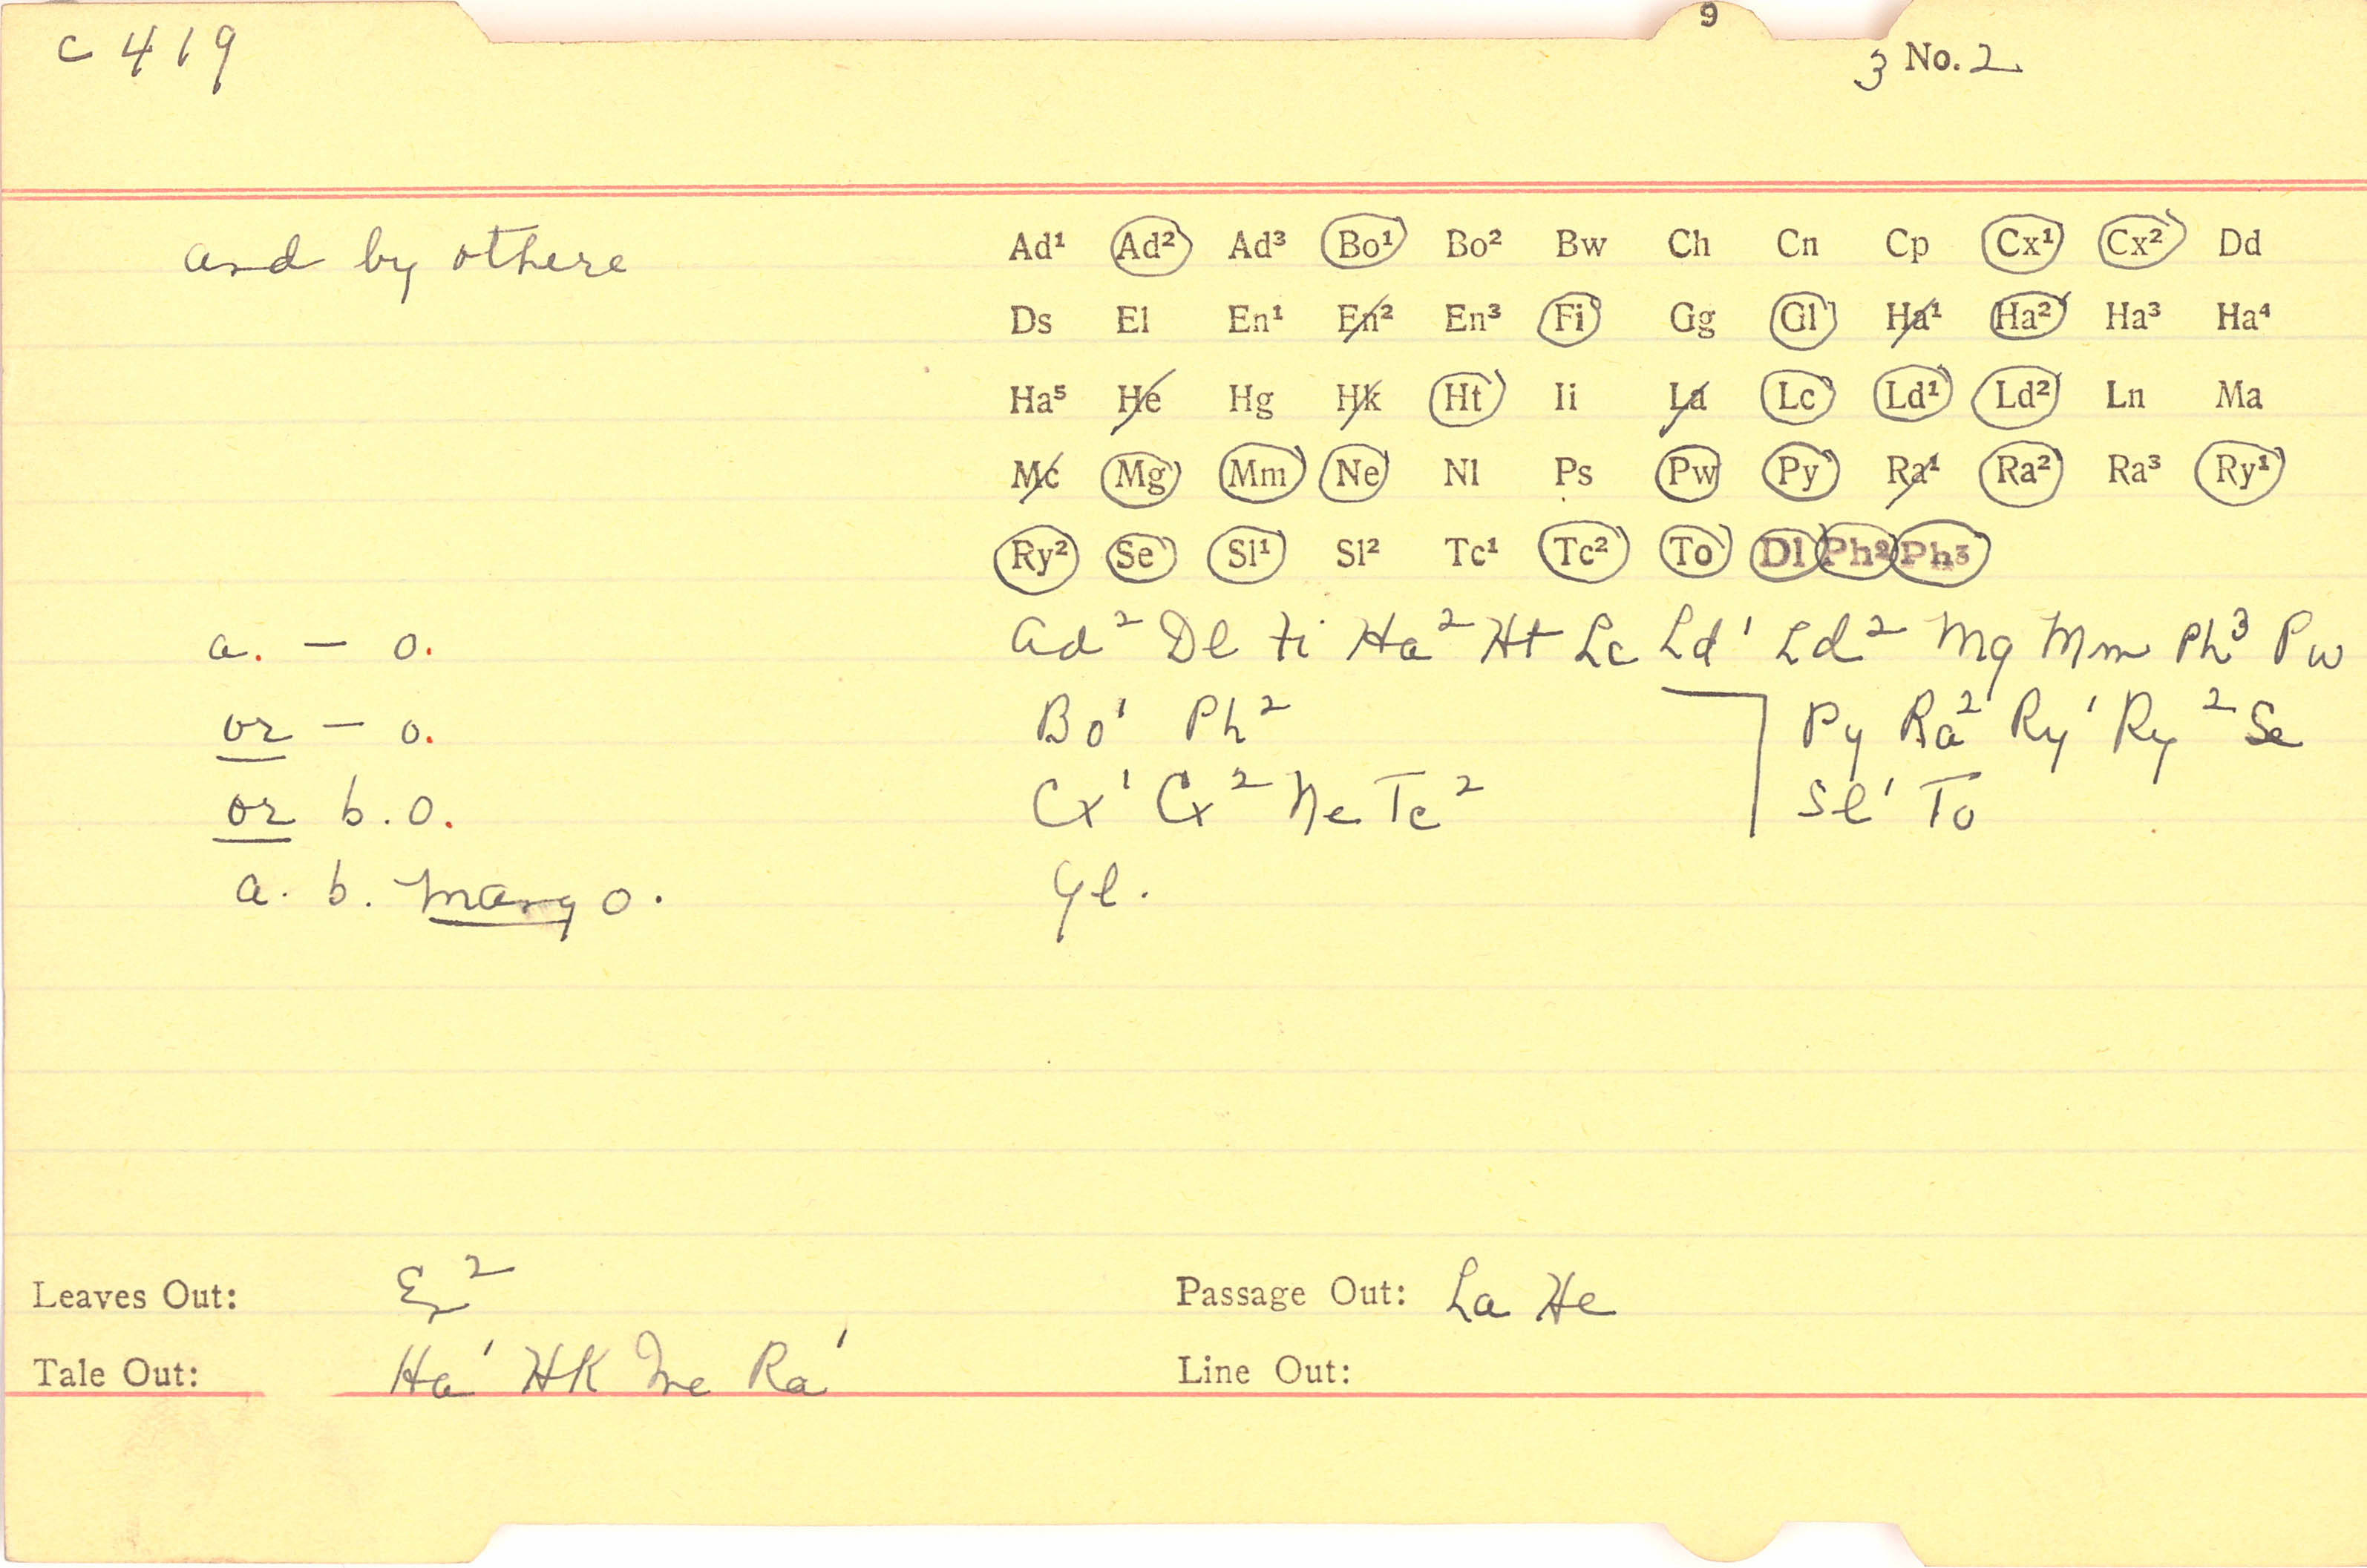 C 419
9
3 No. 2
and by othere
Ad¹ Ad² Ad³ Bo¹ Bo² Bw Ch Cn Cp Cx¹ Cx² Dd
Ds El En¹ En² En³ Fi Gg Gl Ha¹ Ha² Ha³ Ha⁴
Ha⁵ He Hg Hk Ht Ii La Lc Ld¹ Ld² Ln Ma
Mc Mg Mm Ne Nl Ps Pw Py Ra¹ Ra² Ra³ Ry¹
Ry² Se Sl¹ Sl² Tc¹ Tc² To Dl Ph² Ph³
a. — o. Ad² Dl Fi Ha² Ht Lc Ld¹ Ld² Mg Mm Ph³ Pw
or — o. Bo¹ Ph² Py Ra² Ry¹ Ry² Se
or b. o. Cx¹ Cx² Ne Tc² Sl¹ To
a. b. many o. Gl.
Leaves Out: En² Passage Out: La He
Tale Out: Ha¹ Hk Mc Ra¹ Line Out: